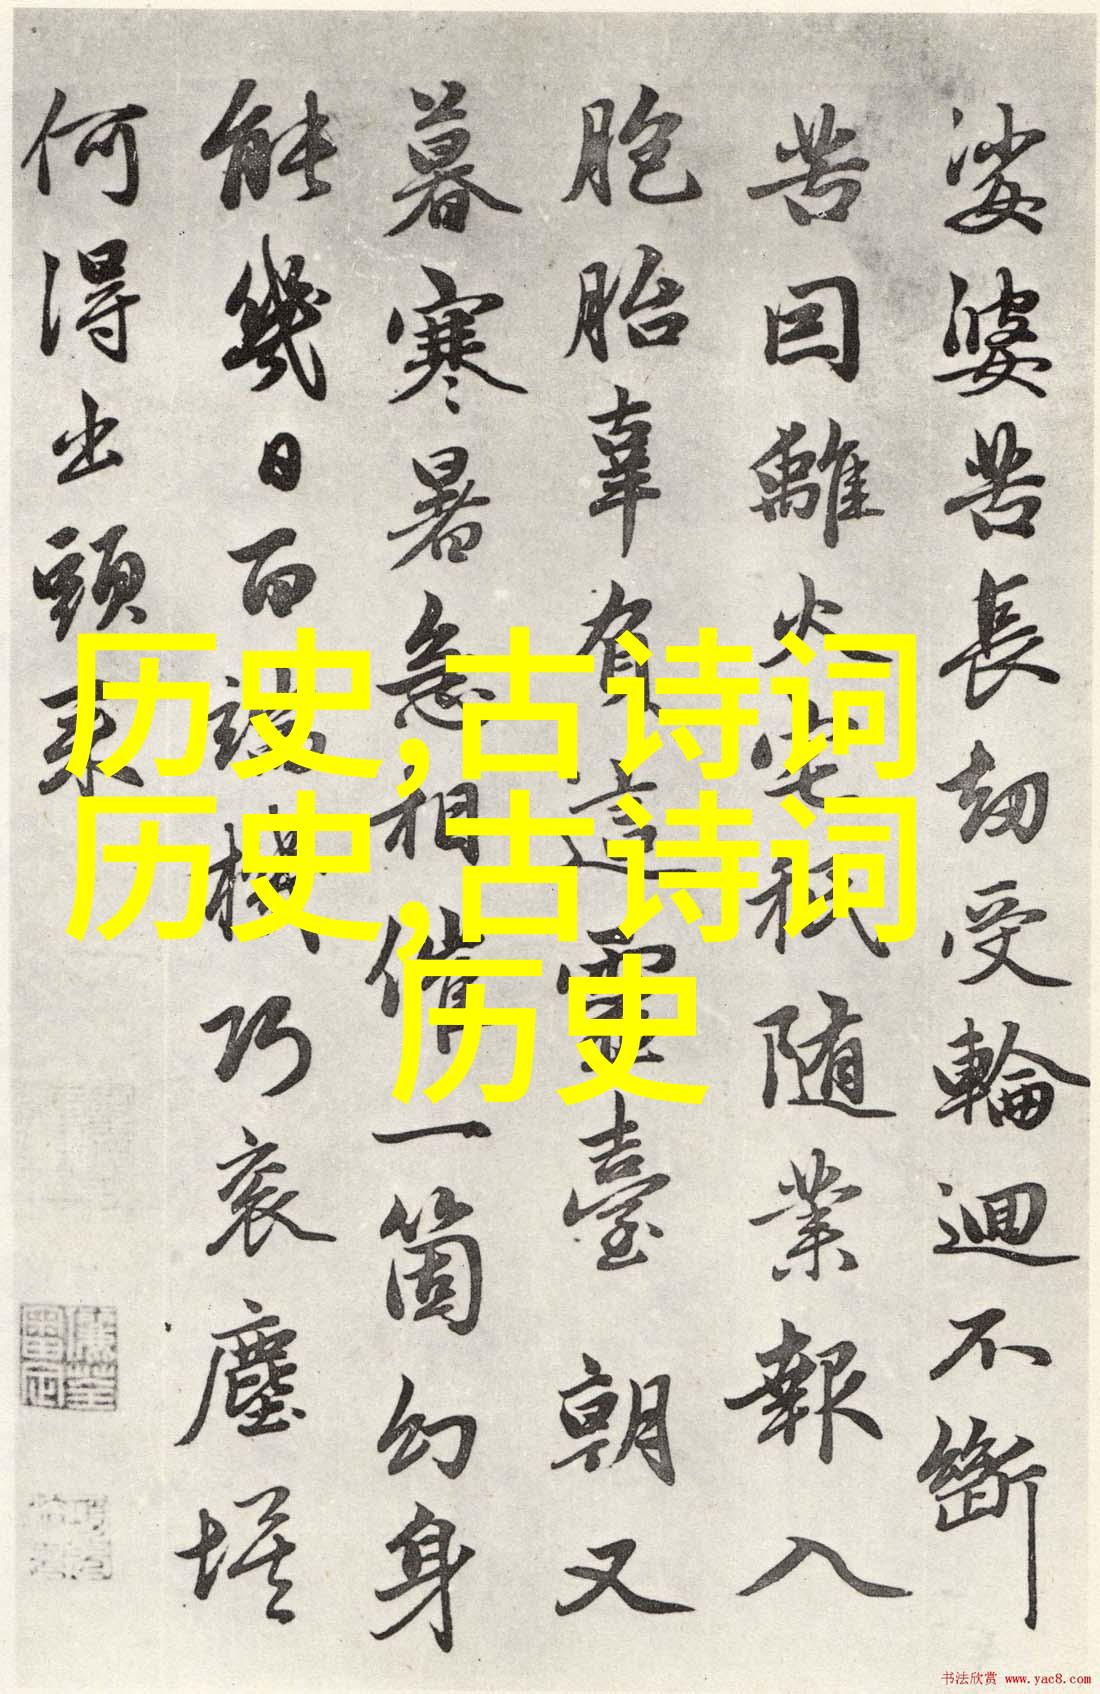 娑婆苦長劫受輪迴不斷
苦因離火宅秖隨業報入
胞胎辜負這靈臺朝又
暮寒暑急相催一箇幻身
能幾日百端機巧衮塵埃
何得出頭來
历史,古诗词
历史,古诗词
历史
书法欣赏 www.yac8.com